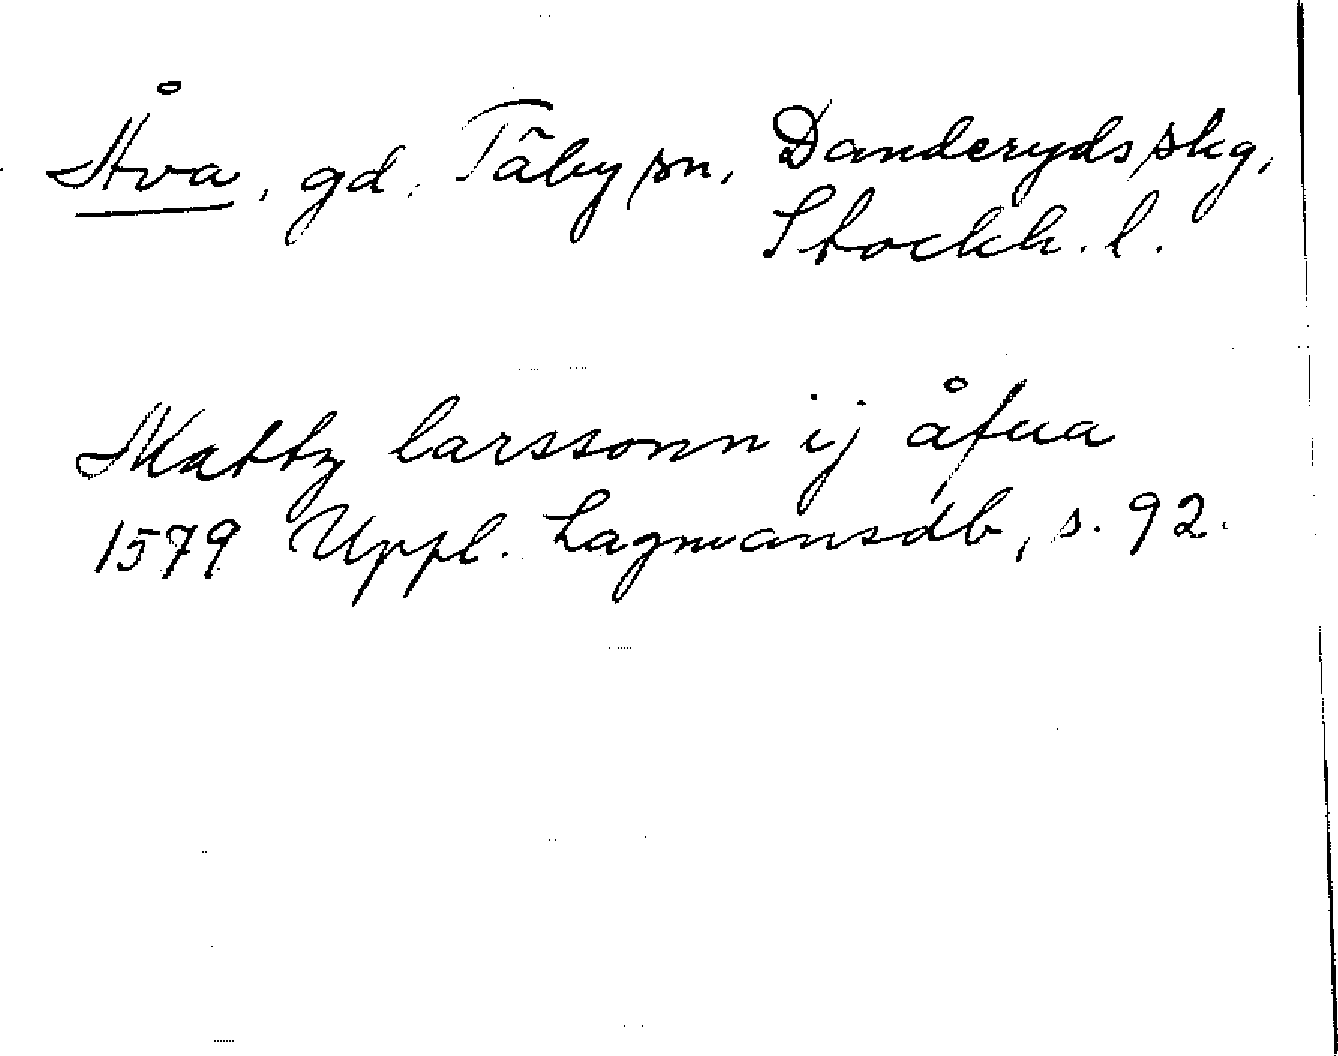 Åva, gd. Täby sn, Danderyds skg,
Stockh. l.
Mattz larssonn ij åfua
1579 Uppl. Lagmansdb, s. 92.